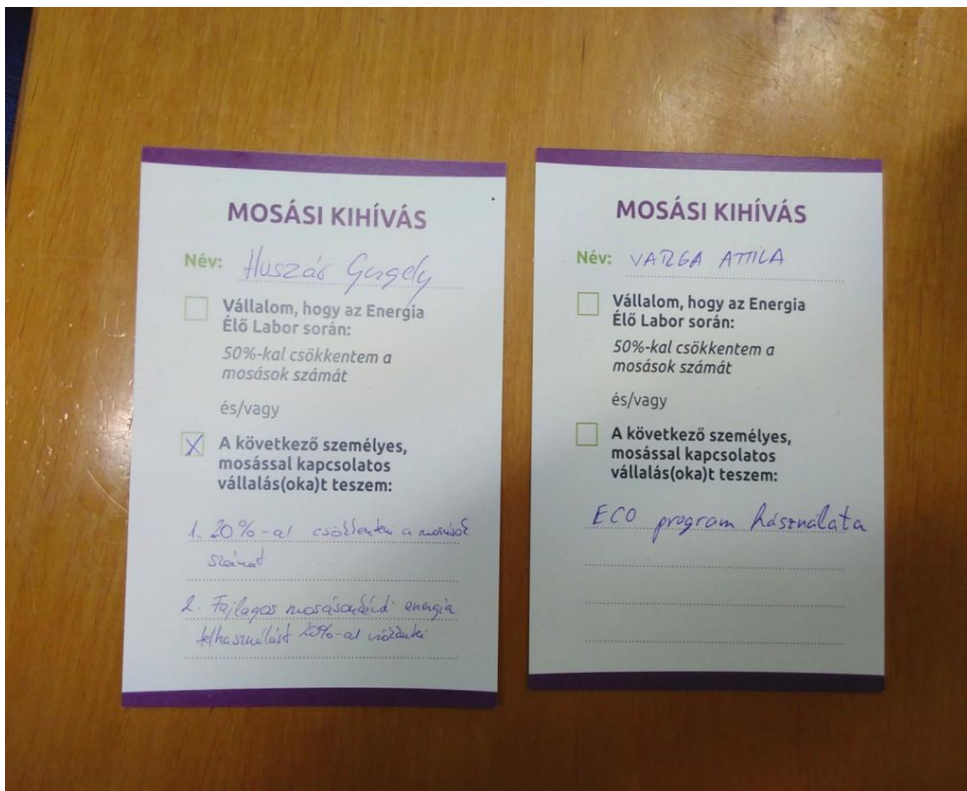 MOSÁSI KIHÍVÁS
Név: Huszár Gergely
Vállalom, hogy az Energia
Élő Labor során:
50%-kal csökkentem a
mosások számát
és/vagy
A következő személyes,
mosással kapcsolatos
vállalás(oka)t teszem:
1. 20%-al csökkenteni a mosások
számát
2. Fajlagos mosásonkénti energia
felhasználást 20%-al csökkenteni
MOSÁSI KIHÍVÁS
Név: VARGA ATTILA
Vállalom, hogy az Energia
Élő Labor során:
50%-kal csökkentem a
mosások számát
és/vagy
A következő személyes,
mosással kapcsolatos
vállalás(oka)t teszem:
ECO program használata